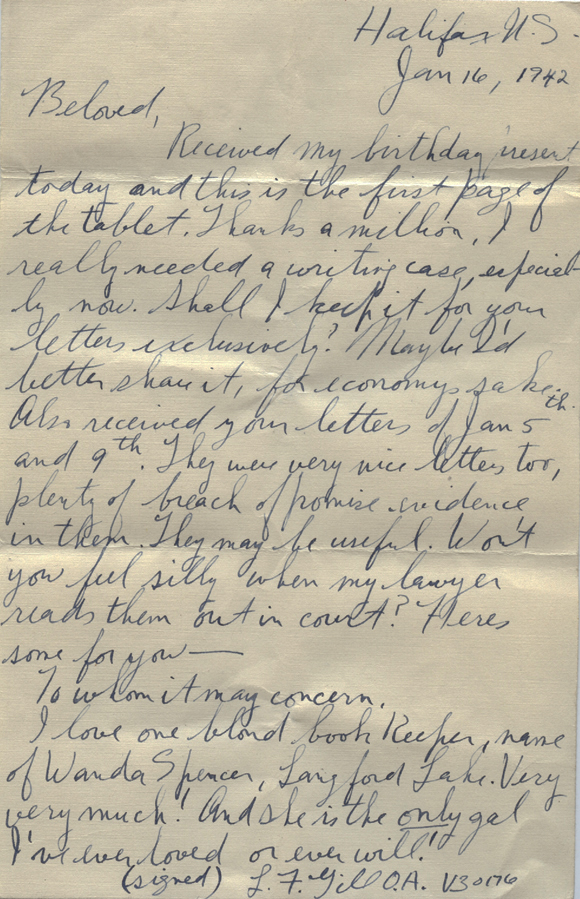 Halifax N.S.
Jan 16, 1942
Beloved,
Received my birthday present
today and this is the first page of
the tablet. Thanks a million, I
really needed a writing case, especial-
ly now. Shall I keep it for your
letters exclusively? Maybe I'd
better share it, for economys sake.
Also received your letters of Jan 5th
and 9th. They were very nice letters too,
plenty of breach of promise evidence
in them. They may be useful. Won't
you feel silly when my lawyer
reads them out in court? Heres
some for you—
To whom it may concern,
I love one blond book keeper, name
of Wanda Spencer, Langford Lake. Very
very much! And she is the only gal
I've ever loved or ever will!
(signed) L. F. Gill O.A. V30176